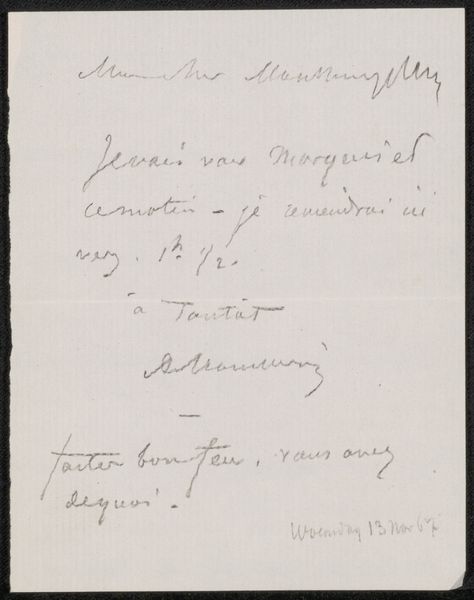 Mon cher
Je vais voir Marquis et
ce matin - je reviendrai ici
vers. 1h 1/2.
à Tantôt
-
faites bon feu. vous avez
de quoi.
Woensdag 13 Nov 67